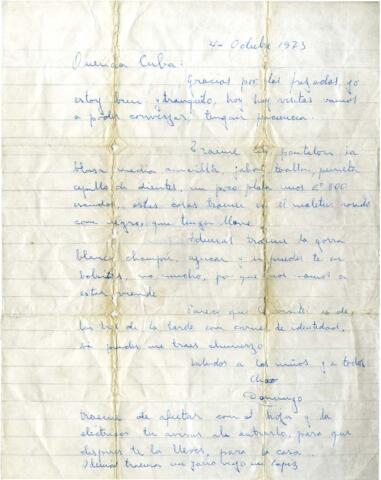 4- Octubre 1973
Querida Cuba:
Gracias por las frazadas, yo
estoy bien y tranquilo, hoy hay visitas vamos
a poder conversar, tengan paciencia.
Traeme pantalon
blusa media amarilla, jabon, toalla, peineta
cepillo de dientes, un poco plata unos Eº 500
estas cosas traeme en el maletin
con negro, que tenga llave.
Ademas traeme la gorra
blanca, champu, azucar y si puedes te en
bolsitas, no mucho, por que nos vamos a
estar viendo
Parece que la visita es de
las de la tarde con carnet de identidad,
si puedes me traes almuerzo
Saludos a los niños y a todos
Chao
Domingo
traeme de afeitar con el hoja y la
electrica tu avisas al entrarlo, para que
despues te la lleves, para la casa.
Ademas traeme un jarro viejo un lapiz